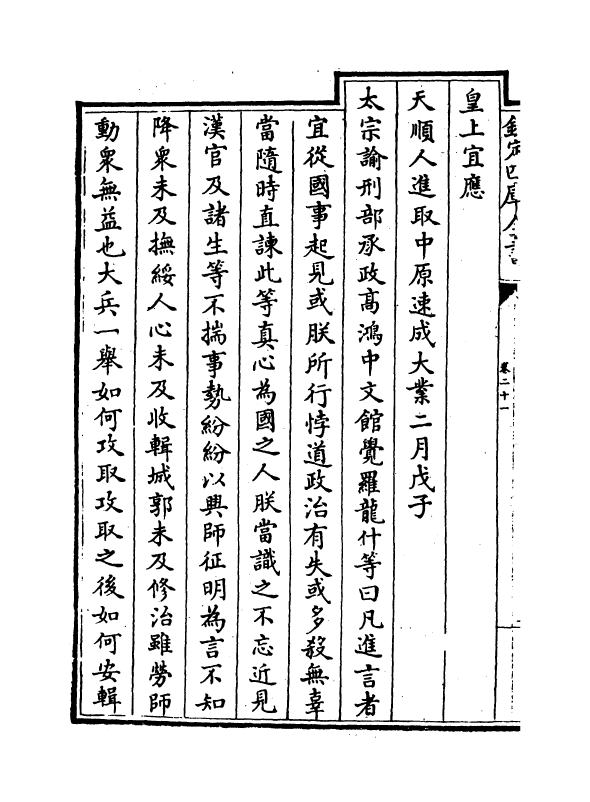 欽定四庫全書
卷二十一
皇上宜應
天順人進取中原速成大業二月戊子
太宗諭刑部承政高鴻中文館覺羅龍什等曰凡進言者
宜從國事起見或朕所行悖道政治有失或多殺無辜
當隨時直諫此等真心為國之人朕當識之不忘近見
漢官及諸生等不揣事勢紛紛以興師征明為言不知
降衆未及撫綏人心未及收輯城郭未及修治雖勞師
動衆無益也大兵一舉如何攻取攻取之後如何安輯